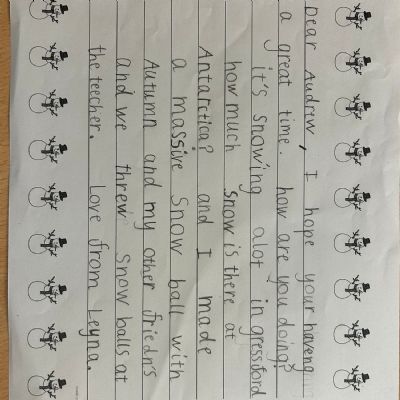 Dear Audrew, I hope your haveng
a great time. how are you doing?
it's snowing alot in gressford
how much snow is there at
Antarctica? and I made
a massive snow ball with
Autumn and my other friedn's
and we threw snow balls at
the teecher. Love from Leyna.